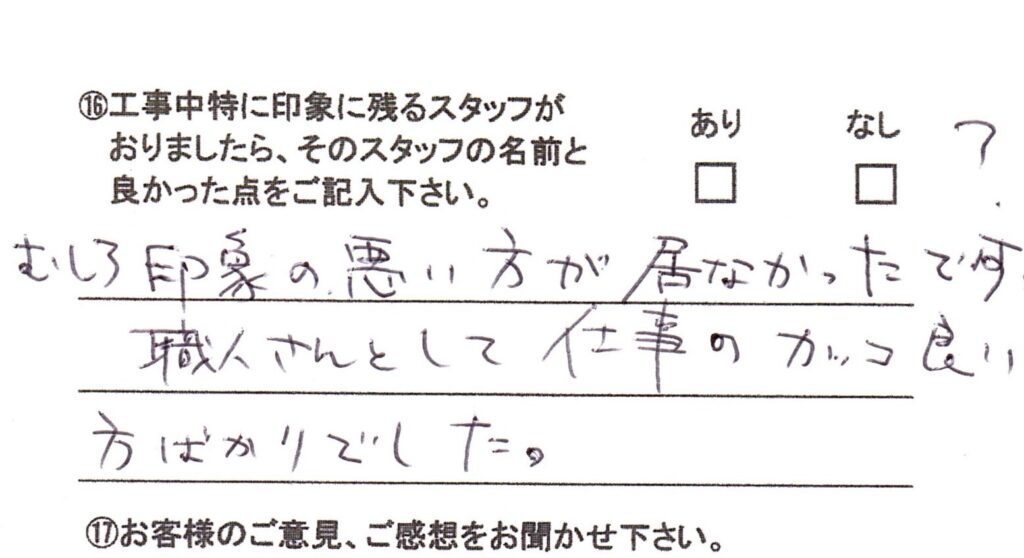 ⑯工事中特に印象に残るスタッフが
おりましたら、そのスタッフの名前と
良かった点をご記入下さい。
あり なし ?
むしろ印象の悪い方が居なかったです
職人さんとして仕事のカッコ良い
方ばかりでした。
⑰お客様のご意見、ご感想をお聞かせ下さい。